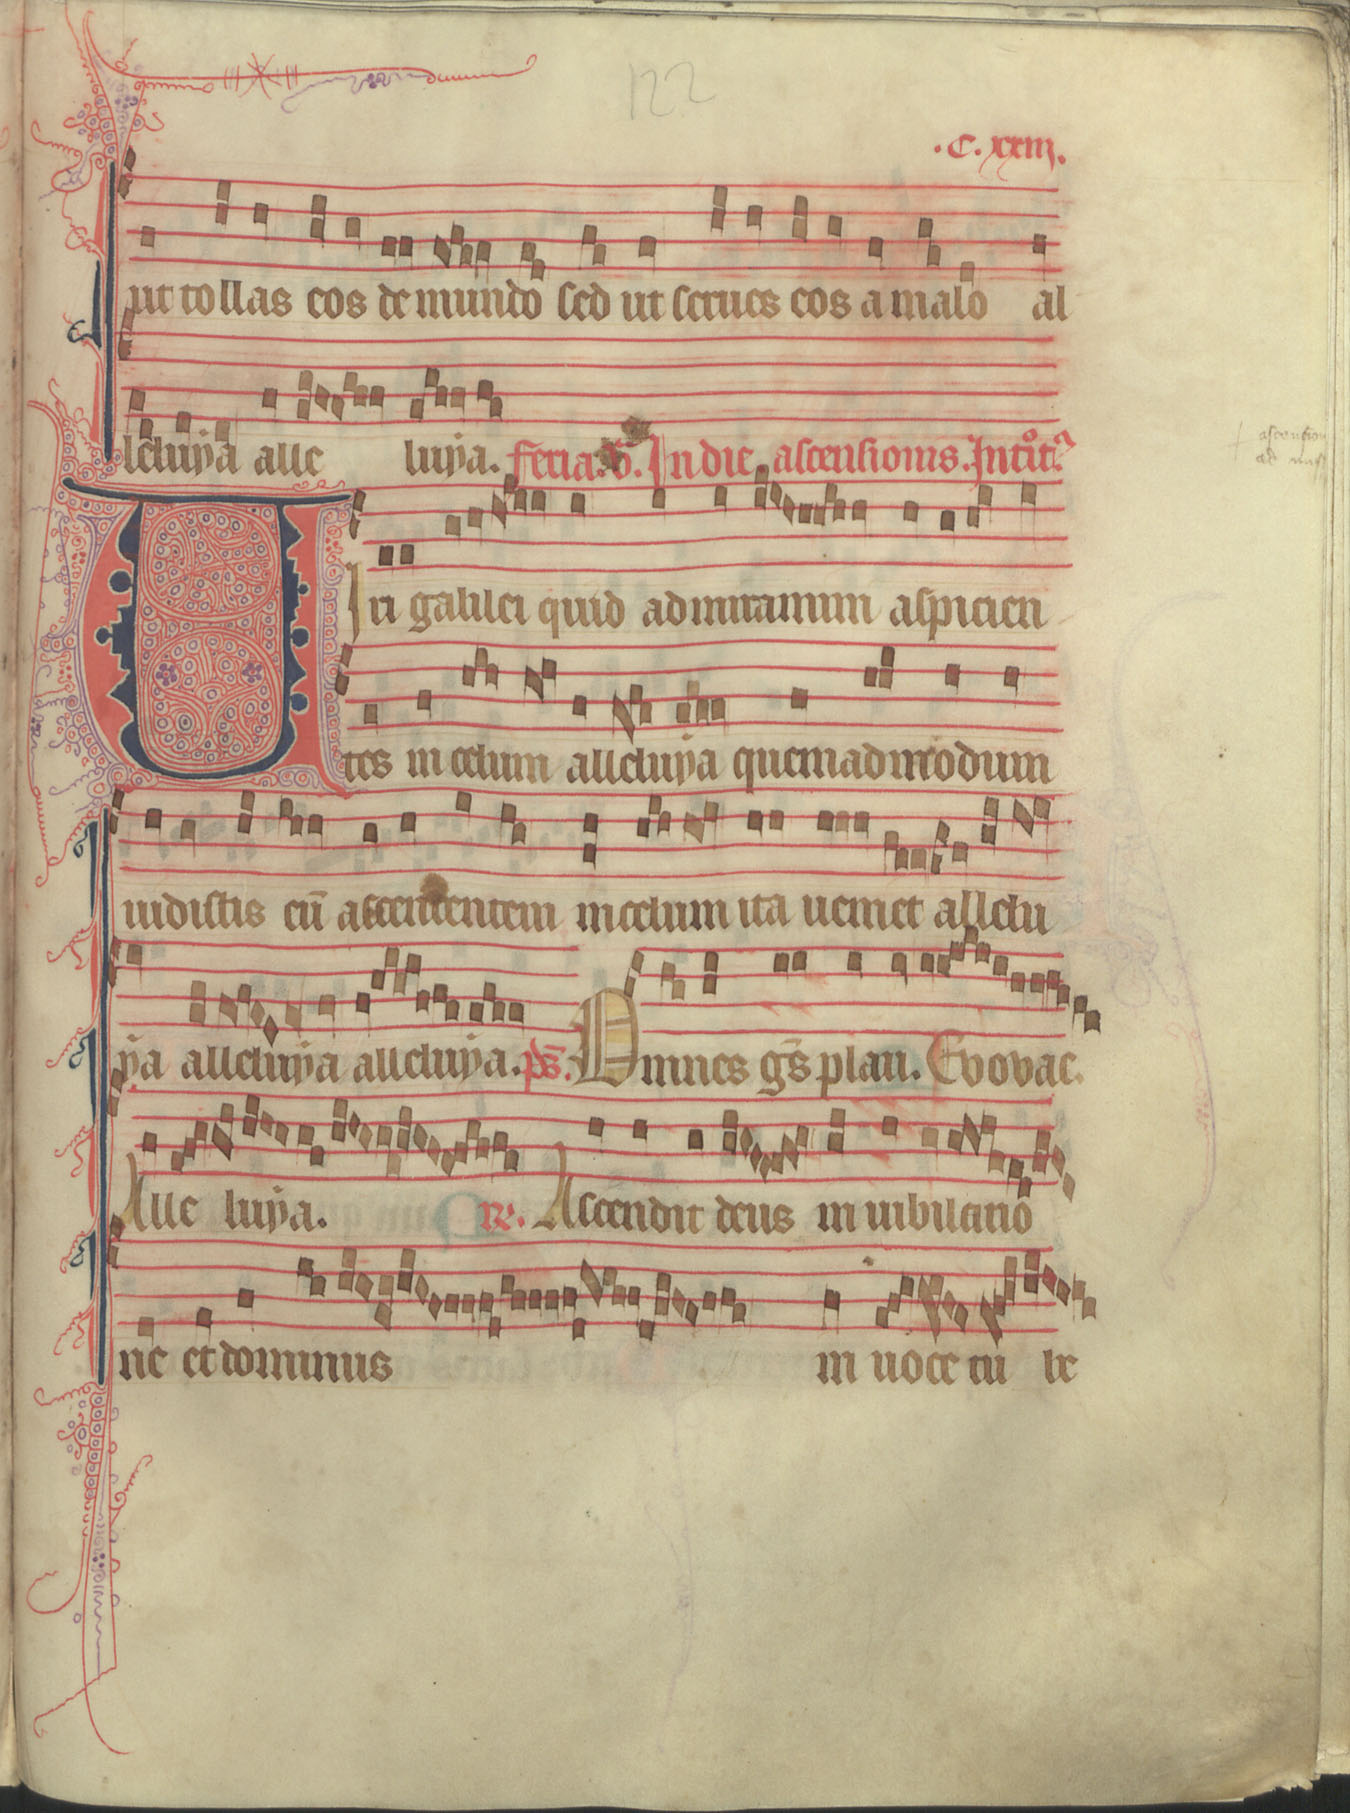 122
.C.xxiii.
ut tollas eos de mundo sed ut serues eos a malo al
leluya alle luya. feria.v. In die ascensionis. Introit.
Viri galilei quid admiramini aspicien
tes in celum alleluya quemadmodum
uidistis eū ascendentem in celum ita ueniet allelu
ya alleluya alleluya. ps. Omnes gs plau. Evovae.
Alle luya. V. Ascendit deus in iubilatio
ne et dominus in uoce tu be